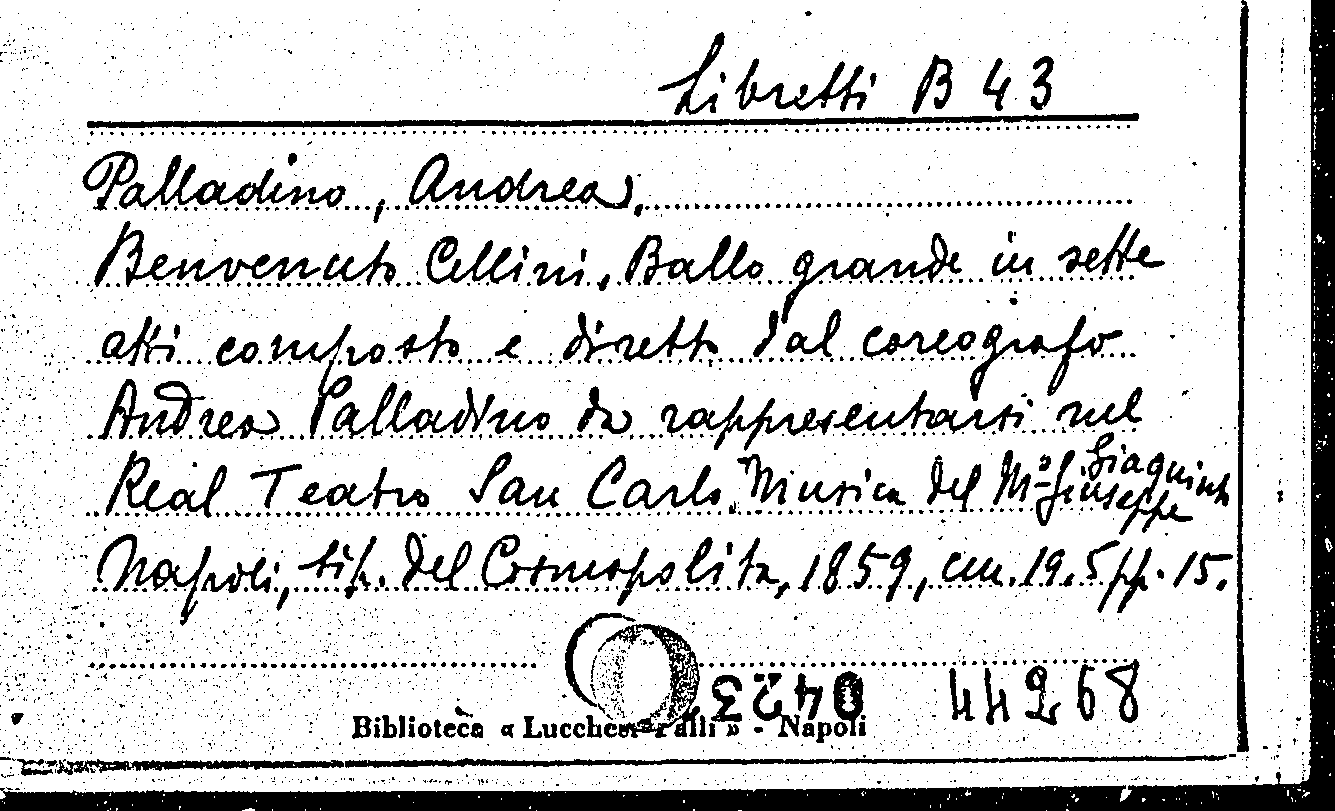 Libretti B 43
Palladino, Andrea.
Benvenuto Cellini. Ballo grande in sette
atti composto e diretto dal coreografo
Andrea Palladino da rappresentarsi nel
Real Teatro San Carlo. Musica del M.o Giuseppe Giaquinto
Napoli, tip. del Cosmopolita, 1859, cm. 19,5 pp. 15.
0423
44268
Biblioteca « Lucchesi-Palli » - Napoli